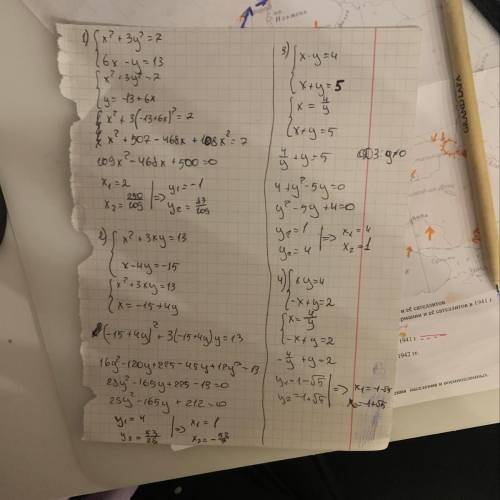 1) { x² + 3y² = 7
6x - y = 13
{ x² + 3y² = 7
y = -13 + 6x
{ x² + 3(-13+6x)² = 7
x² + 507 - 468x + 108x² = 7
109x² - 468x + 500 = 0
x₁ = 2 | => y₁ = -1
x₂ = 250/109 | y₂ = 83/109
2) { x² + 3xy = 13
x - 4y = -15
{ x² + 3xy = 13
x = -15 + 4y
(-15+4y)² + 3(-15+4y)y = 13
16y² - 120y + 225 - 45y + 12y² = 13
28y² - 165y + 225 - 13 = 0
28y² - 165y + 212 = 0
y₁ = 4 | => x₁ = 1
y₂ = 53/28 | x₂ = -52/7
3) { x·y = 4
x + y = 5
{ x = 4/y
x + y = 5
4/y + y = 5 ОДЗ: y≠0
4 + y² - 5y = 0
y² - 5y + 4 = 0
y₁ = 1 | => x₁ = 4
y₂ = 4 | x₂ = 1
4) { xy = 4
-x + y = 2
{ x = 4/y
-x + y = 2
-4/y + y = 2
y₁ = 1 - √5 | => x₁ = -1 - √5
y₂ = 1 + √5 | x₂ = -1 + √5
и её сателлитов
рмании и её сателлитов в 1941 г
1941 г.
1942 гг.